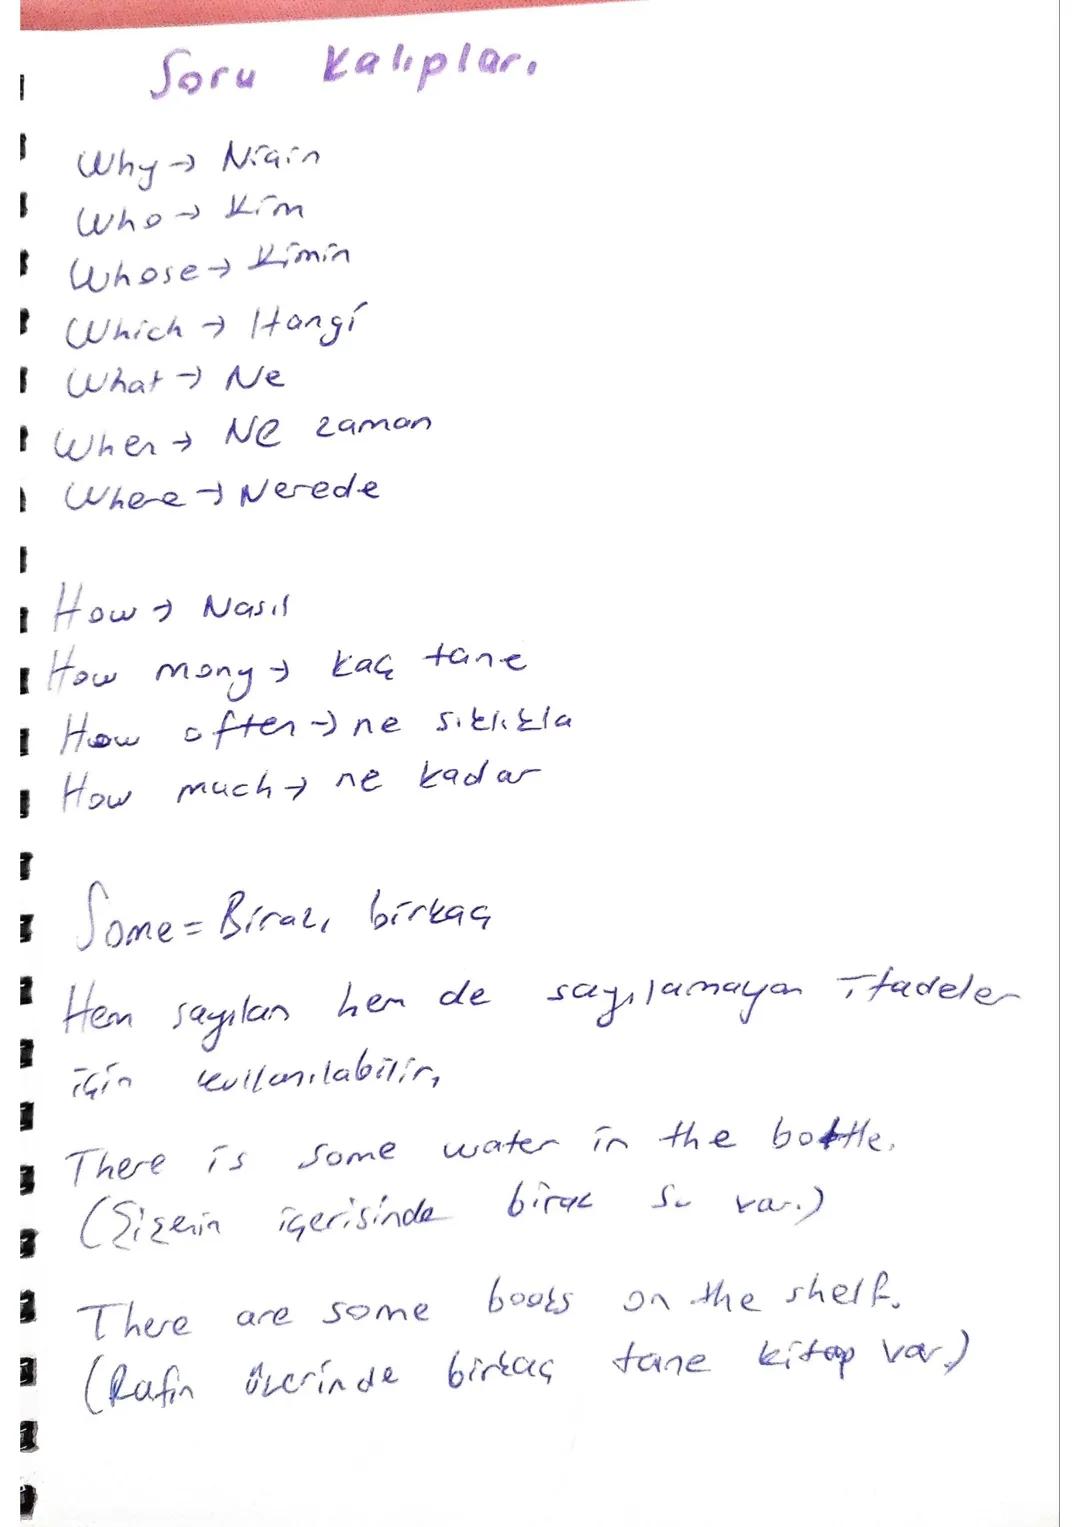 Soru Kalıpları
Why → Niçin
Who → Kim
Whose → Kimin
Which → Hangi
What → Ne
When → Ne zaman
Where → Nerede
How → Nasıl
How many → kaç tane
How often → ne sıklıkla
How much → ne kadar
Some = Biraz, birkaç
Hem sayılan hem de sayılamayan ifadeler
için kullanılabilir,
There is some water in the bottle.
(Şişenin içerisinde biraz su var.)
There are some books on the shelf.
(Rafın üzerinde birkaç tane kitap var.)